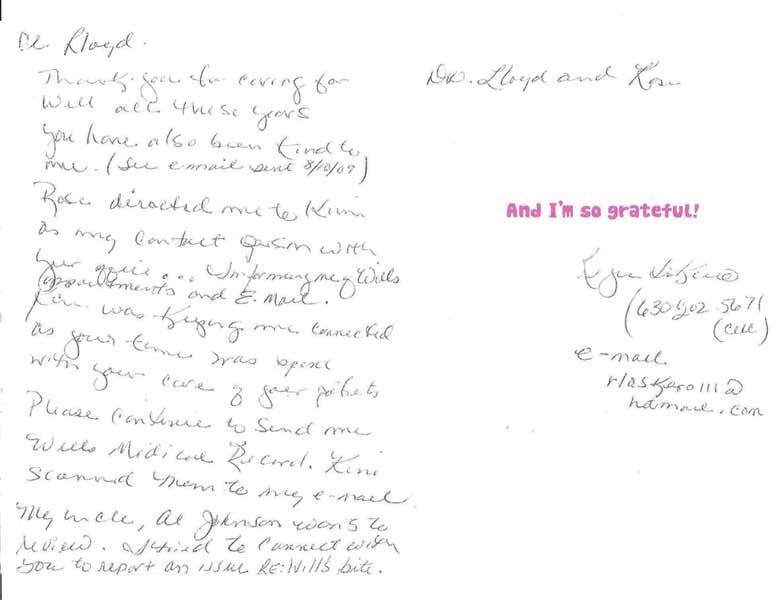 Dr. Lloyd.
Thank you for caring for
Will all these years
you have also been kind to
me. (See e-mail sent 8/10/09)
Rose directed me to Kim
as my contact person with
your office... Informing me of Wills
appointments and E-Mail.
Kim was keeping me connected
as your time was spent
with your care of your patients
Please continue to send me
Wills Medical Record. Kim
scanned them to my e-mail
My uncle, Al Johnson wants to
review. I tried to connect with
you to report an issue RE: Will's bite.
Dr. Lloyd and Rose
And I'm so grateful!
(630 202-5671
(cell)
e-mail
hotmail.com